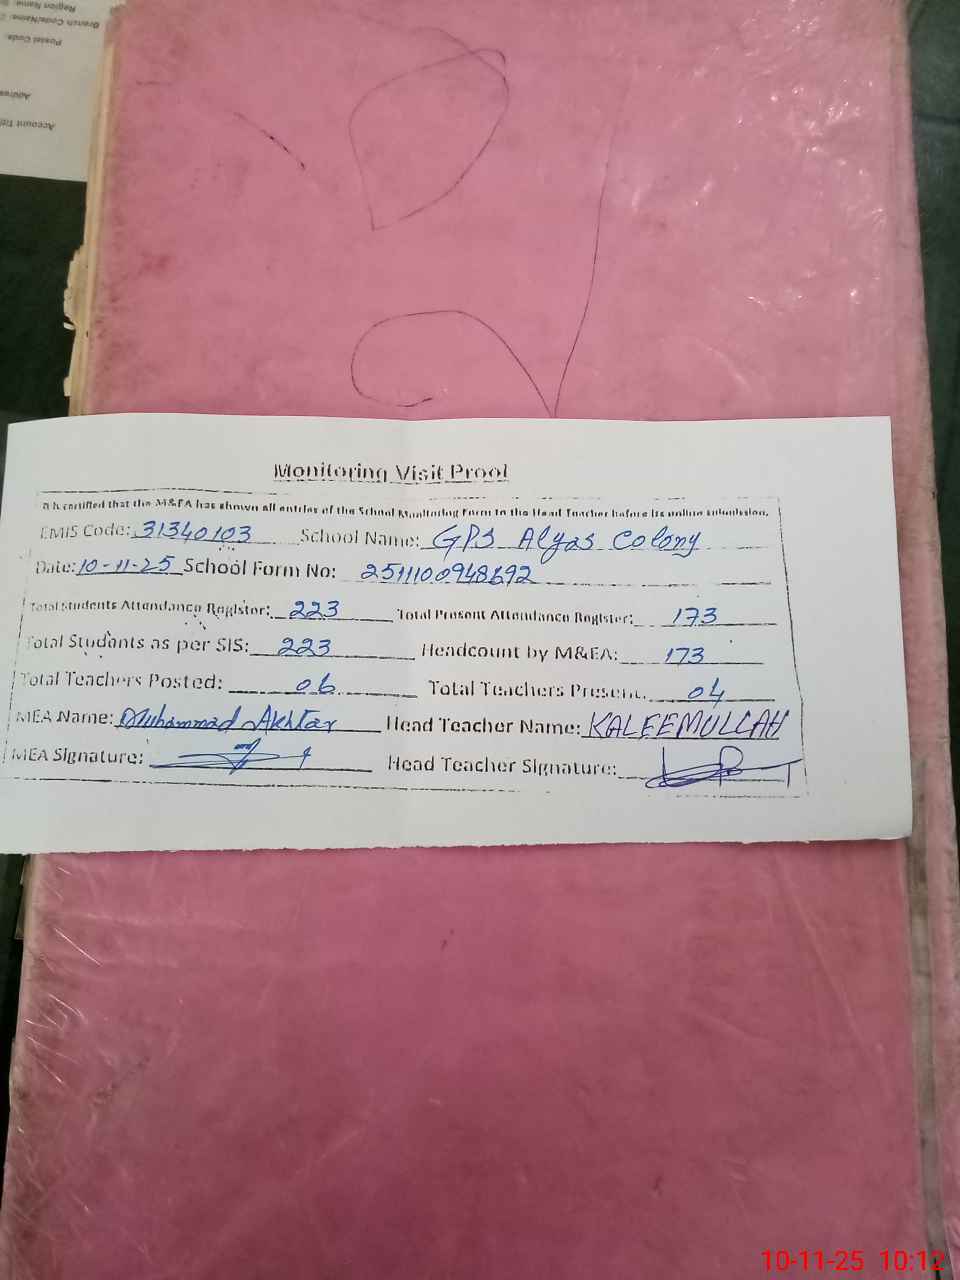 Region Name:
Branch Code/Name:
Postal Code:
Account Titl
Monitoring Visit Proof
It is certified that the M&EA has shown all entries of the School Monitoring Form to the Head Teacher before its online submission.
EMIS Code: 31340103 School Name: GPS Alyas Colony
Date: 10-11-25 School Form No:
Total Students Attendance Register: 223 Total Present Attendance Register: 173
Total Students as per SIS: 223 Headcount by M&EA: 173
Total Teachers Posted: 06 Total Teachers Present: 04
MEA Name: Muhammad Akhtar Head Teacher Name: KALEEMULLAH
MEA Signature: Head Teacher Signature:
10-11-25 10:12